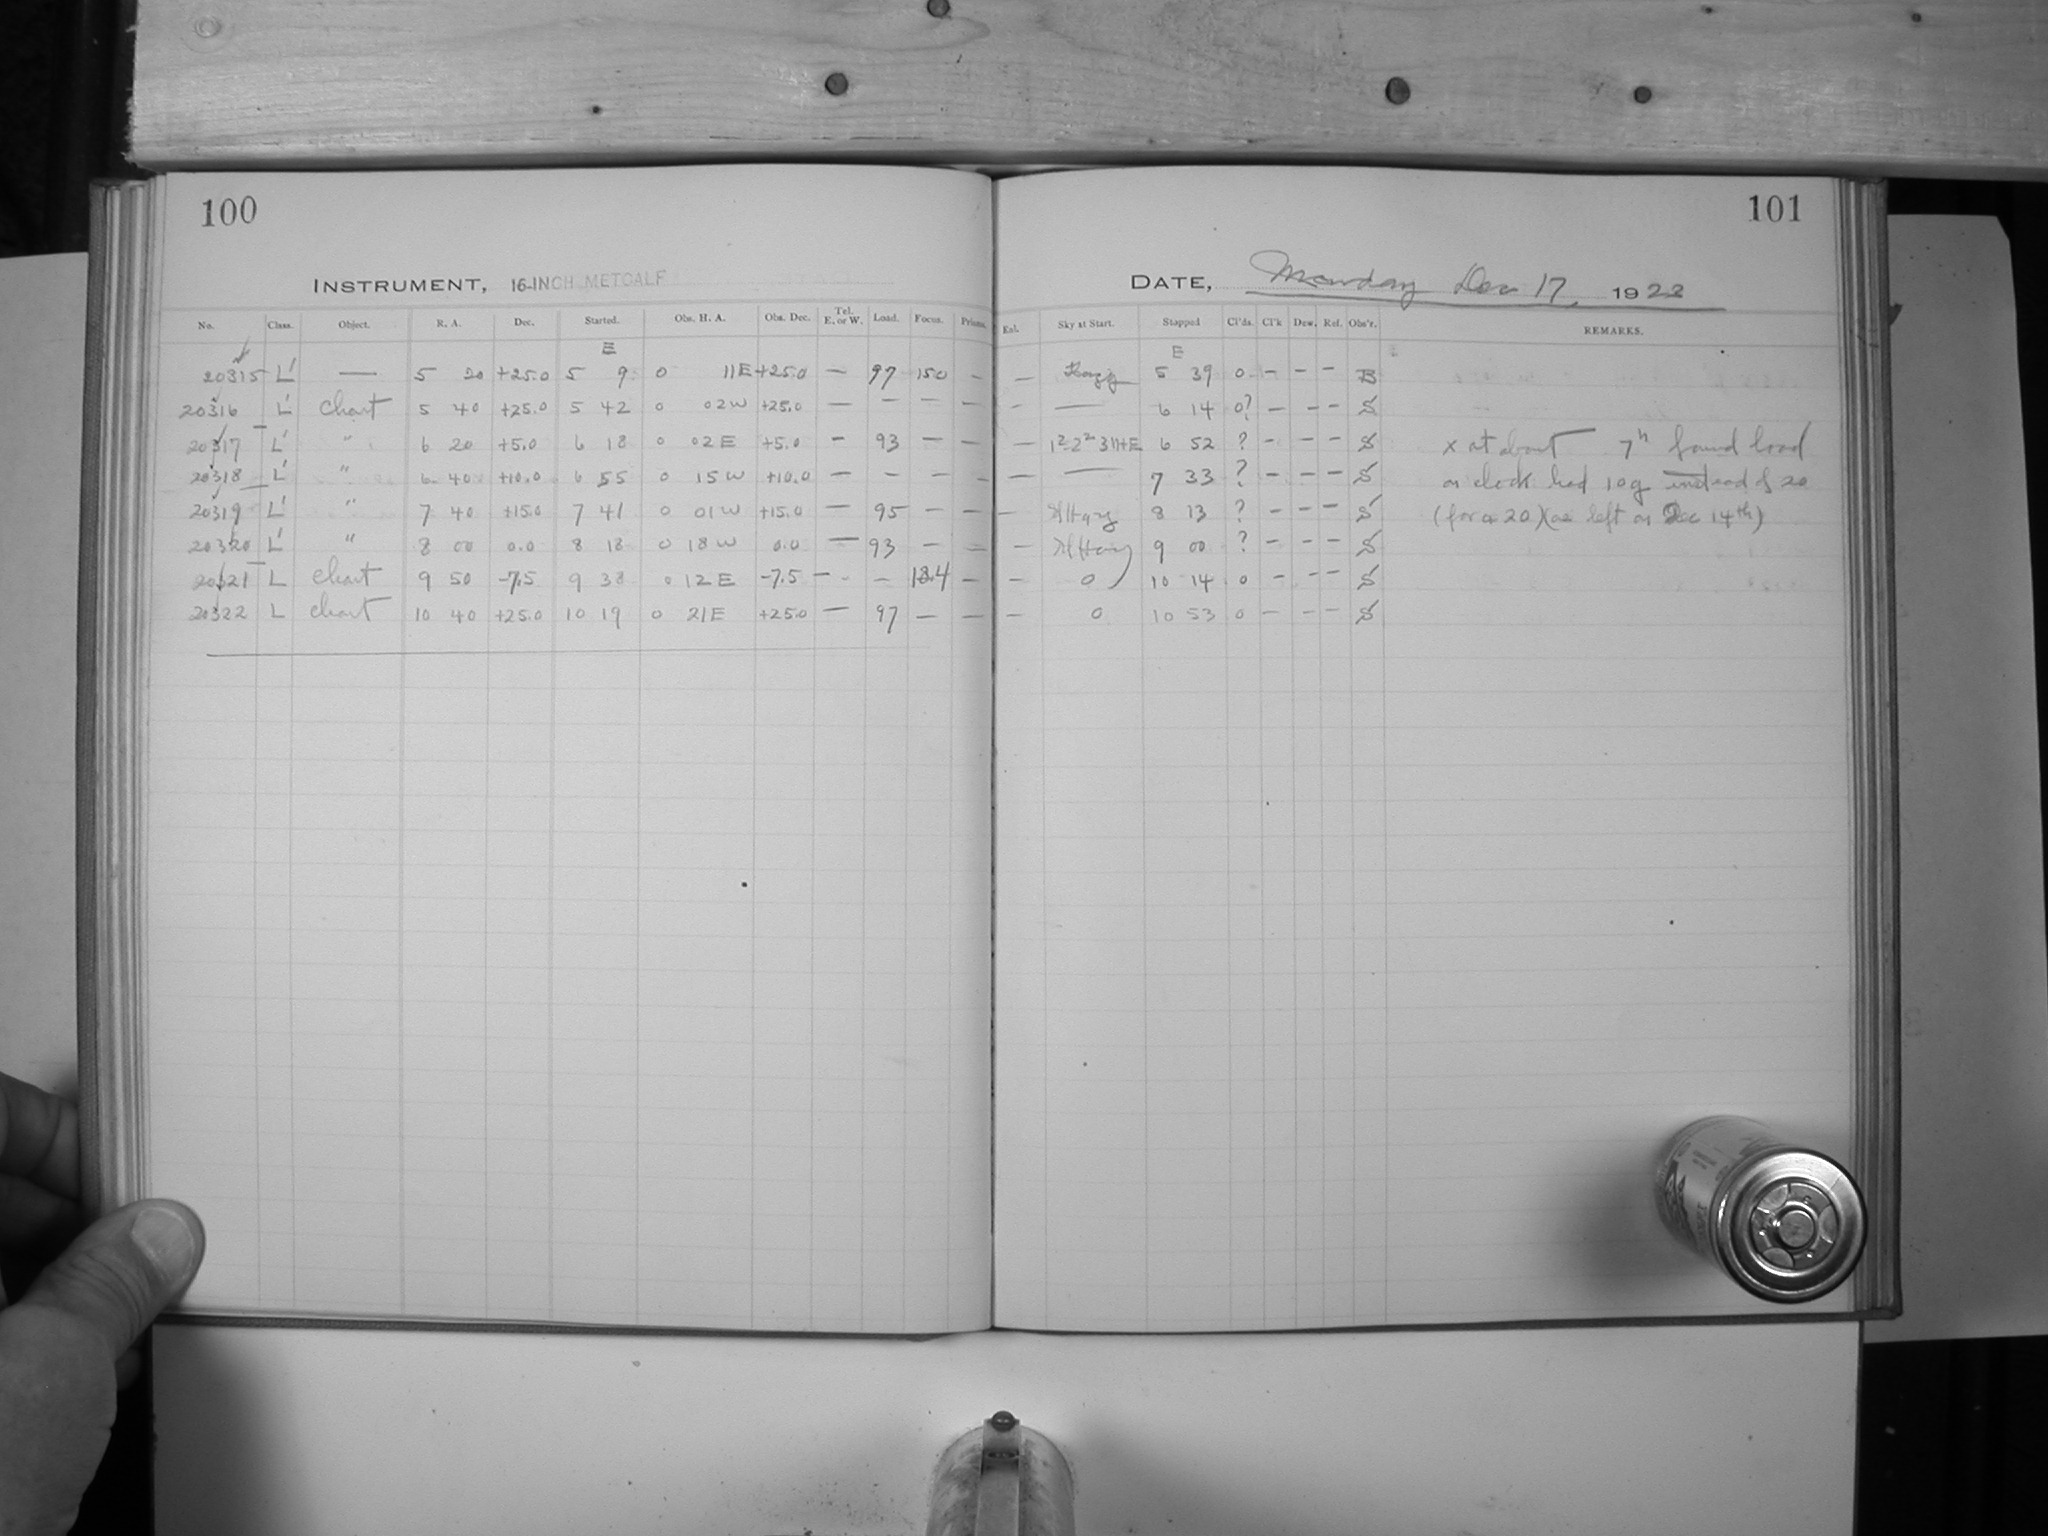 100
101
INSTRUMENT, 16-INCH METCALF
DATE, Monday Dec 17, 1928
No. Class. Object. R. A. Dec. Started. Obs. H. A. Obs. Dec. Tel. E. or W. Load. Focus. Prisms. Eml. Sky at Start. Stopped Cl'ds. Cl'k Dew. Ref. Obs'r. REMARKS.
E E
20315 L' — 5 20 +25.0 5 9 0 11E +25.0 — 97 15.0 - — 5 39 0 - - - B
20316 L' Chart 5 40 +25.0 5 42 0 02W +25.0 — — — - - — 6 14 0? — - - S
20317 L' " 6 20 +5.0 6 18 0 02E +5.0 - 93 — - — 6 52 ? - - - S x at about 7h found load
20318 L' " 6 40 +10.0 6 55 0 15W +10.0 — — — - — — 7 33 ? - - - S on clock had 10g instead of 20
20319 L' " 7 40 +15.0 7 41 0 01W +15.0 — 95 - - — H Hazy 8 13 ? - - - S (for a 20) (as left on Dec 14th)
20320 L' " 8 00 0.0 8 18 0 18W 0.0 — 93 — - — 9 00 ? - - - S
20321 L Chart 9 50 -7.5 9 38 0 12E -7.5 - - — 18.4 — - 0 10 14 0 - - - S
20322 L Chart 10 40 +25.0 10 19 0 21E +25.0 — 97 — — — 0 10 53 0 — - - S